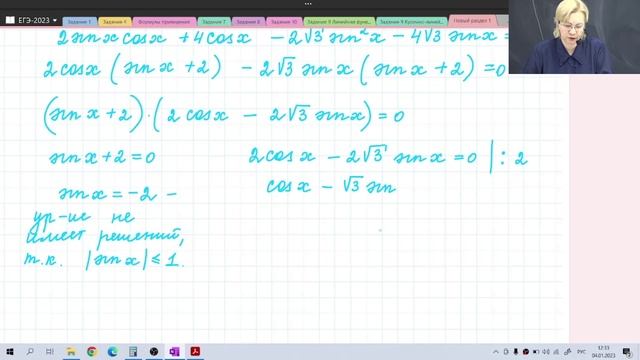 ЕГЭ-2023
Задание 1 Задание 4 Формулы приведения Задание 7 Задание 8 Задание 2 Задание 5 Задание 10 Задание 9 Линейная функ... Задание 9 Кусочно-линей... Новый раздел 1
2 sin x cos x + 4 cos x - 2√3 sin²x - 4√3 sin x =
2 cos x (sin x + 2) - 2√3 sin x (sin x + 2) = 0
(sin x + 2) · (2 cos x - 2√3 sin x) = 0
sin x + 2 = 0
2 cos x - 2√3 sin x = 0 | : 2
sin x = -2 -
cos x - √3 sin
ур-ие не
имеет решений,
т.к. |sin x| ≤ 1.
РУС
12:33
04.01.2023